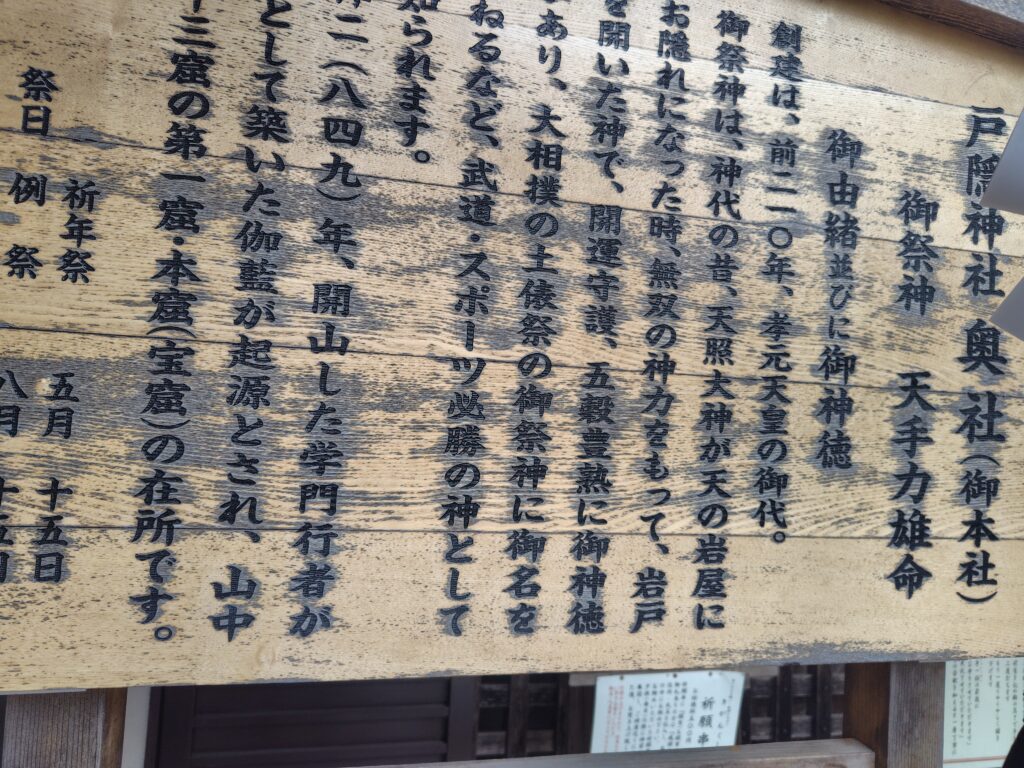 戸隠神社 奥社(御本社)
御祭神 天手力雄命
御由緒並びに御神徳
創建は、前二一〇年、孝元天皇の御代。
御祭神は、神代の昔、天照大神が天の岩屋に
お隠れになった時、無双の神力をもって、岩戸
を開いた神で、開運守護、五穀豊熟に御神徳
あり、大相撲の土俵祭の御祭神に御名を
ねるなど、武道・スポーツ必勝の神として
知られます。
二(八四九)年、開山した学門行者が
として築いた伽藍が起源とされ、山中
十三窟の第一窟・本窟(宝窟)の在所です。
祭日 祈年祭 五月 十五日
例祭 八月 十五日
祈願串